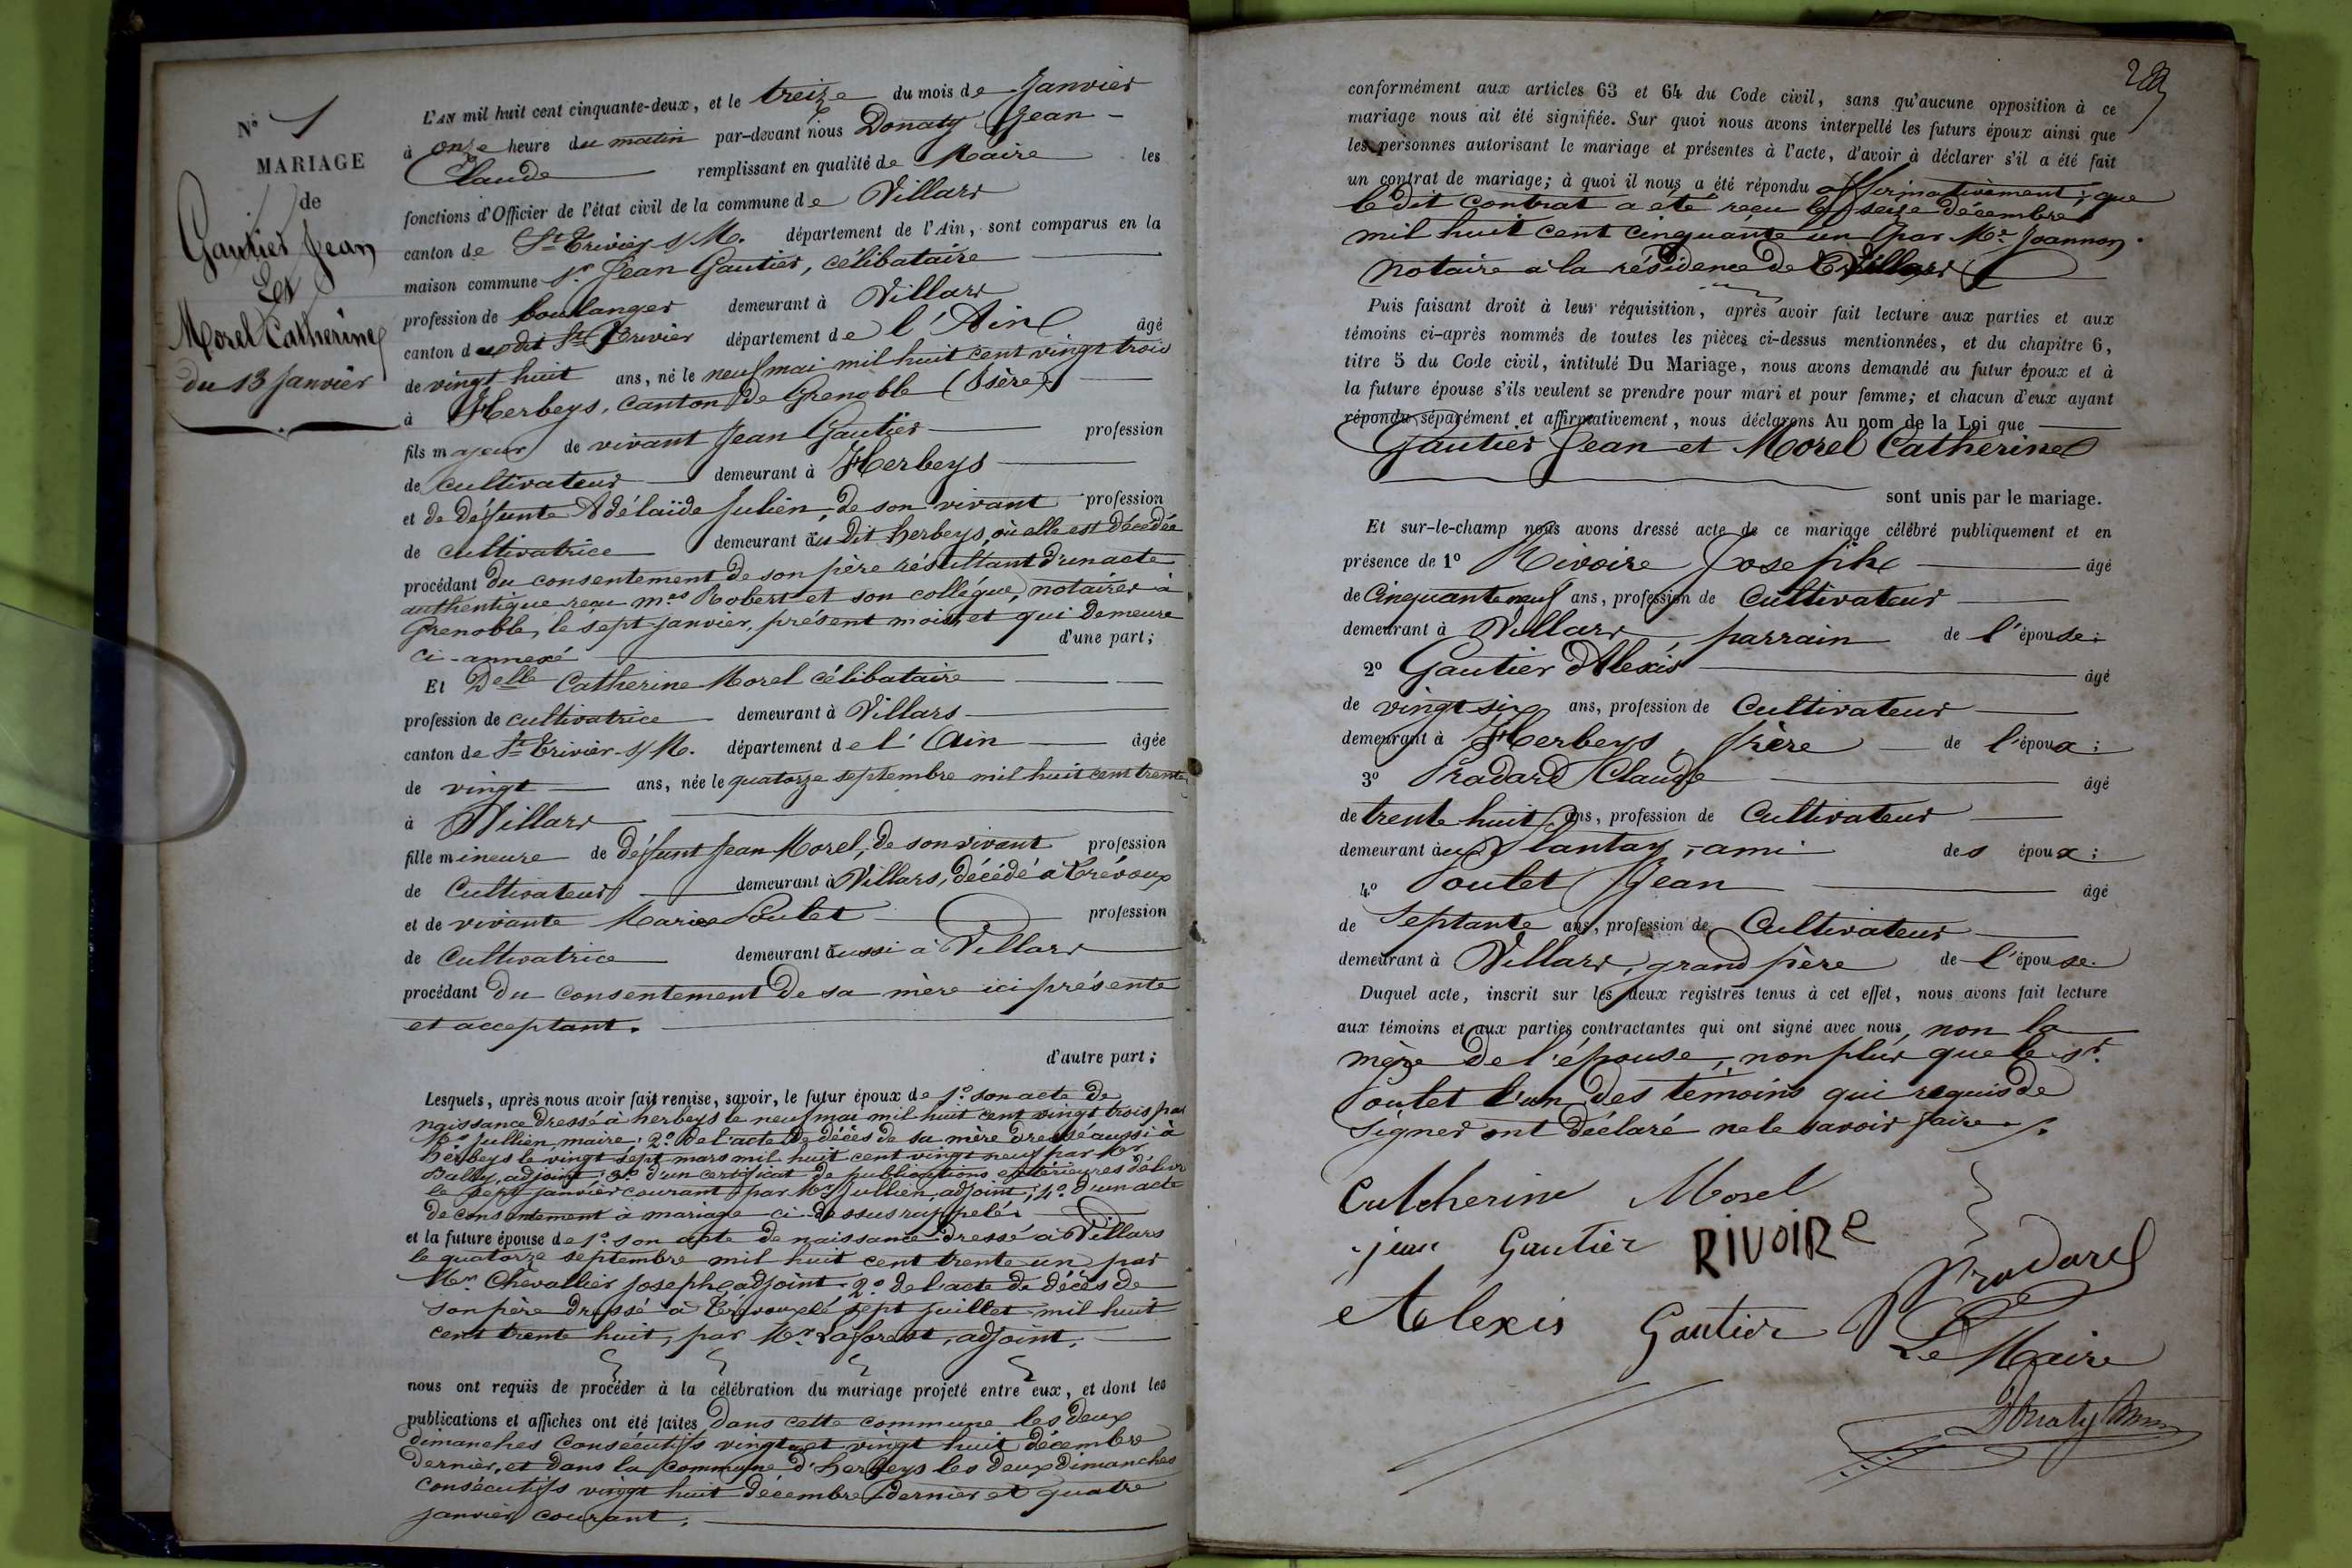 N° 1
MARIAGE
de
Gautier Jean
Et
Morel Catherine
du 13 janvier
L'AN mil huit cent cinquante-deux, et le treize du mois de Janvier
à onze heure du matin par-devant nous Donaty Jean-
Claude remplissant en qualité de Maire les
fonctions d'Officier de l'état civil de la commune de Villars
canton de St Trivier s/M. département de l'Ain, sont comparus en la
maison commune Sr Jean Gautier, célibataire
profession de boulanger demeurant à Villars
canton du dit St Trivier département de l'Ain âgé
de vingt huit ans, né le neuf mai mil huit cent vingt trois
à Herbeys, canton de Grenoble (Isère)
fils majeur de vivant Jean Gautier profession
de cultivateur demeurant à Herbeys
et de défunte Adélaïde Julien, de son vivant profession
de cultivatrice demeurant au dit herbeys, où elle est décédée
procédant du consentement de son père résultant d'un acte
authentique reçu mes Robert et son collégue, notaires à
Grenoble, le sept janvier, présent mois, et qui demeure
ci-annexé d'une part;
Et Delle Catherine Morel célibataire
profession de cultivatrice demeurant à Villars
canton de St Trivier-s/M. département de l'Ain âgée
de vingt ans, née le quatorze septembre mil huit cent trente
à Villars
fille mineure de défunt Jean Morel, de son vivant profession
de Cultivateur demeurant à Villars, décédé à Trévoux
et de vivante Marie Poulet profession
de Cultivatrice demeurant aussi à Villars
procédant du consentement de sa mère ici présente
et acceptant.
d'autre part;
Lesquels, après nous avoir fait remise, savoir, le futur époux de 1° son acte de
naissance dressé à herbeys le neuf mai mil huit cent vingt trois par
Mr Jullien, maire; 2° de l'acte de décès de sa mère dressé aussi à
herbeys le vingt sept mars mil huit cent vingt neuf par Mr
adjoint; 3° d'un certificat de publications extérieures délivré
le sept janvier courant par Mr Jullien, adjoint; 4° d'un acte
de consentement à mariage ci-dessus rappelé.
et la future épouse de 1° son acte de naissance dressé à Villars
le quatorze septembre mil huit cent trente un par
Mr. Chevallier Joseph, adjoint. 2° de l'acte de décès de
son père dressé à Trévoux le sept juillet mil huit
cent trente huit, par Mr. Laforest, adjoint.
nous ont requis de procéder à la célébration du mariage projeté entre eux, et dont les
publications et affiches ont été faites dans cette commune les deux
dimanches consécutifs vingt un et vingt huit décembre
dernier, et dans la commune d'herbeys les deux dimanches
consécutifs vingt huit décembre dernier et quatre
janvier courant.
conformément aux articles 63 et 64 du Code civil, sans qu'aucune opposition à ce
mariage nous ait été signifiée. Sur quoi nous avons interpellé les futurs époux ainsi que
les personnes autorisant le mariage et présentes à l'acte, d'avoir à déclarer s'il a été fait
un contrat de mariage; à quoi il nous a été répondu affirmativement; que
le dit contrat a été reçu le seize décembre
mil huit cent cinquante un par Mr. Joannon
notaire à la résidence de Villars
Puis faisant droit à leur réquisition, après avoir fait lecture aux parties et aux
témoins ci-après nommés de toutes les pièces ci-dessus mentionnées, et du chapitre 6,
titre 5 du Code civil, intitulé Du Mariage, nous avons demandé au futur époux et à
la future épouse s'ils veulent se prendre pour mari et pour femme; et chacun d'eux ayant
répondu séparément et affirmativement, nous déclarons Au nom de la Loi que
Gautier Jean et Morel Catherine
sont unis par le mariage.
Et sur-le-champ nous avons dressé acte de ce mariage célébré publiquement et en
présence de 1° Rivoire Joseph âgé
de Cinquante neuf ans, profession de Cultivateur
demeurant à Villars, parrain de l'épouse;
2° Gautier Alexis âgé
de vingt six ans, profession de Cultivateur
demeurant à Herbeys, frère de l'époux;
3° Pradard Claude âgé
de trente huit ans, profession de Cultivateur
demeurant au Plantay, ami des époux;
4° Poulet Jean âgé
de Septante ans, profession de Cultivateur
demeurant à Villars, grand père de l'épouse.
Duquel acte, inscrit sur les deux registres tenus à cet effet, nous avons fait lecture
aux témoins et aux parties contractantes qui ont signé avec nous, non la
mère de l'épouse, non plus que le sr.
Poulet l'un des témoins qui requis de
signer ont déclaré ne le savoir faire.
Catherine Morel
jean Gautier RIVOIRe
Pradard
Alexis Gautier
Le Maire
Donaty